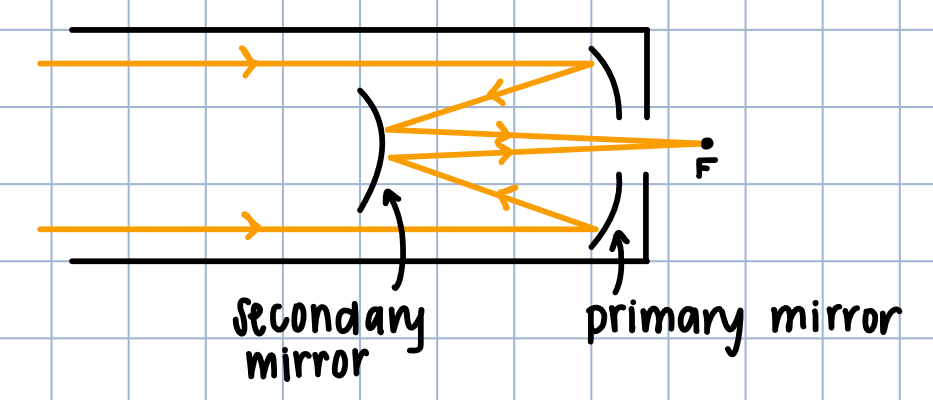 F
secondary
mirror
primary mirror